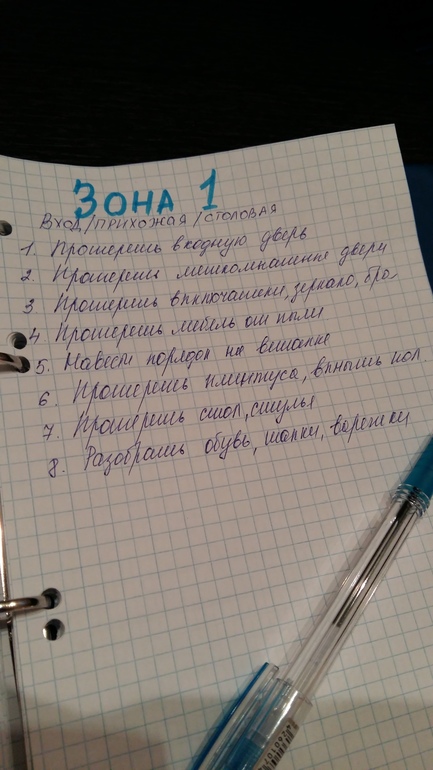 ЗОНА 1
ВХОД/ПРИХОЖАЯ/СТОЛОВАЯ
1. Протереть входную дверь
2. Протереть межкомнатные двери
3 Протереть выключатели, зеркало, бра
4 Протереть мебель от пыли
5. Навести порядок на вешалке
6. Протереть плинтуса, вымыть пол.
7. Протереть стол, стулья
8. Разобрать обувь, шапки, варежки